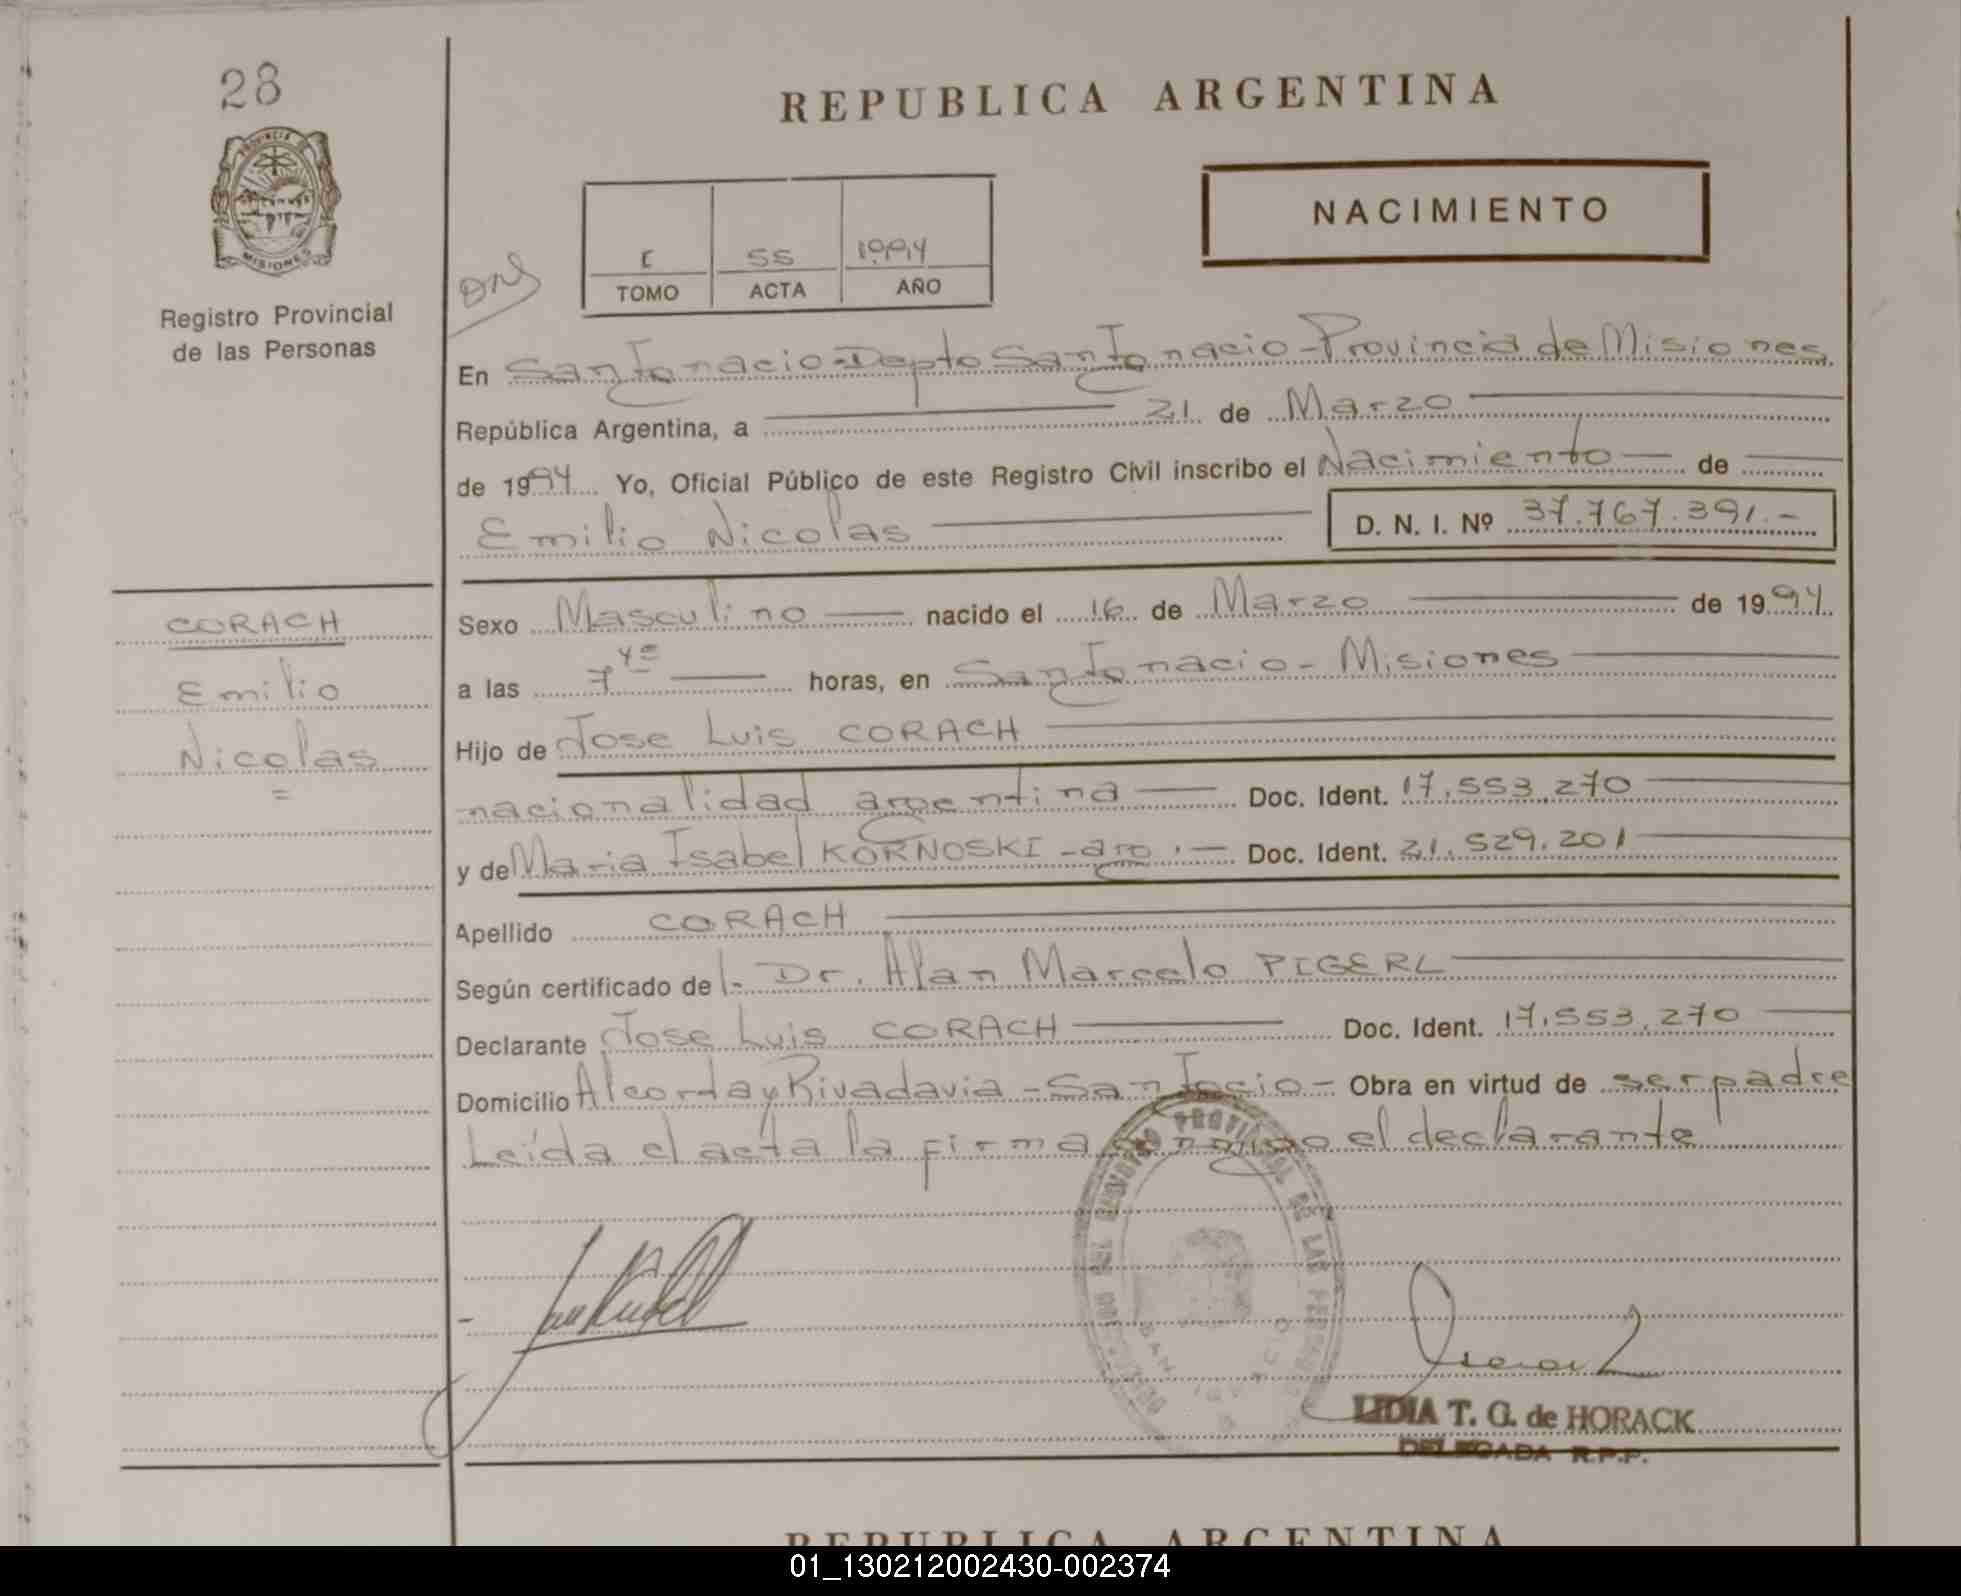 28
REPUBLICA ARGENTINA
PROVINCIA DE
MISIONES
NACIMIENTO
I 55 1994
TOMO ACTA AÑO
Registro Provincial
de las Personas
En San Ignacio-Depto San Ignacio-Provincia de Misiones
República Argentina, a 21 de Marzo
de 1994 Yo, Oficial Público de este Registro Civil inscribo el Nacimiento de
Emilio Nicolas D. N. I. Nº 37.767.391.-
CORACH
Emilio
Nicolas
Sexo Masculino nacido el 16 de Marzo de 1994
a las 7 horas, en San Ignacio - Misiones
Hijo de Jose Luis CORACH
nacionalidad argentina Doc. Ident. 17.553.270
y de Maria Isabel KORNOSKI - arg. Doc. Ident. 21.529.201
Apellido CORACH
Según certificado de Dr. Alan Marcelo PIGERL
Declarante Jose Luis CORACH Doc. Ident. 17.553.270
Domicilio Alcorta y Rivadavia - San Igcio - Obra en virtud de ser padre
Leída el acta la firma conmigo el declarante
LIDIA T. G. de HORACK
DELEGADA R.P.P.
REPUBLICA ARGENTINA
01_130212002430-002374